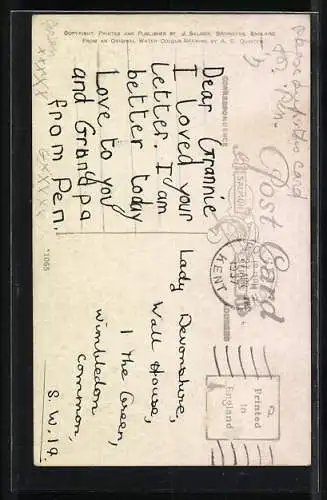 COPYRIGHT. PRINTED AND PUBLISHED BY J. SALMON, SEVENOAKS, ENGLAND
FROM AN ORIGINAL WATER COLOUR DRAWING BY A. R. QUINTON
please send this card
to Pen
Post Card
CORRESPONDENCE
ADDRESS
Dear Grannie
I loved your
letter. I am
better today
Love to you
and Grandpa
from Pen.
xxxxx
*1065
SALMON
SEVENOAKS
1937
KENT
Printed
In
England
Lady Devonshire,
Wall House,
1 The Green,
Wimbledon
Common,
S.W.19.